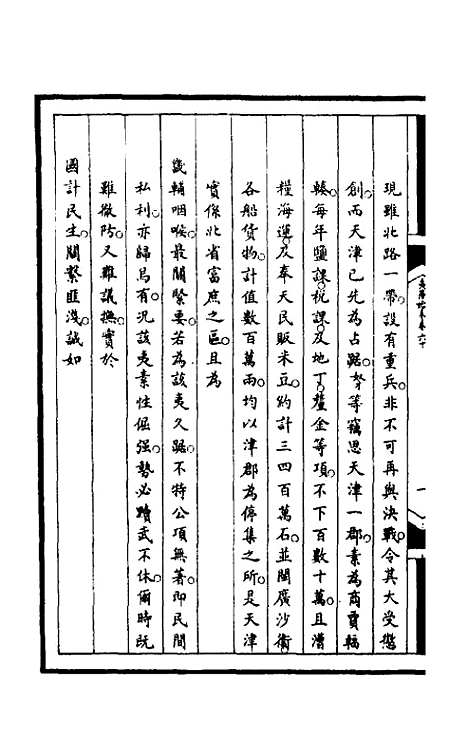 現雖北路一帶設有重兵非不可再與決戰令其大受懲
創而天津已先為占踞孥等竊思天津一郡素為商賈輻
輳每年鹽課稅課及地丁釐金等項不下百數十萬且漕
糧海運及奉天民販米豆約計三四百萬石並閩廣沙衞
各船貨物計值數百萬兩均以津郡為停集之所是天津
實係北省富庶之區且為
畿輔咽喉最關緊要若為該夷久踞不特公項無著即民間
私利亦歸烏有況該夷素性倔强勢必黷武不休爾時既
難撤防又難議撫實於
國計民生關繫匪淺誠如